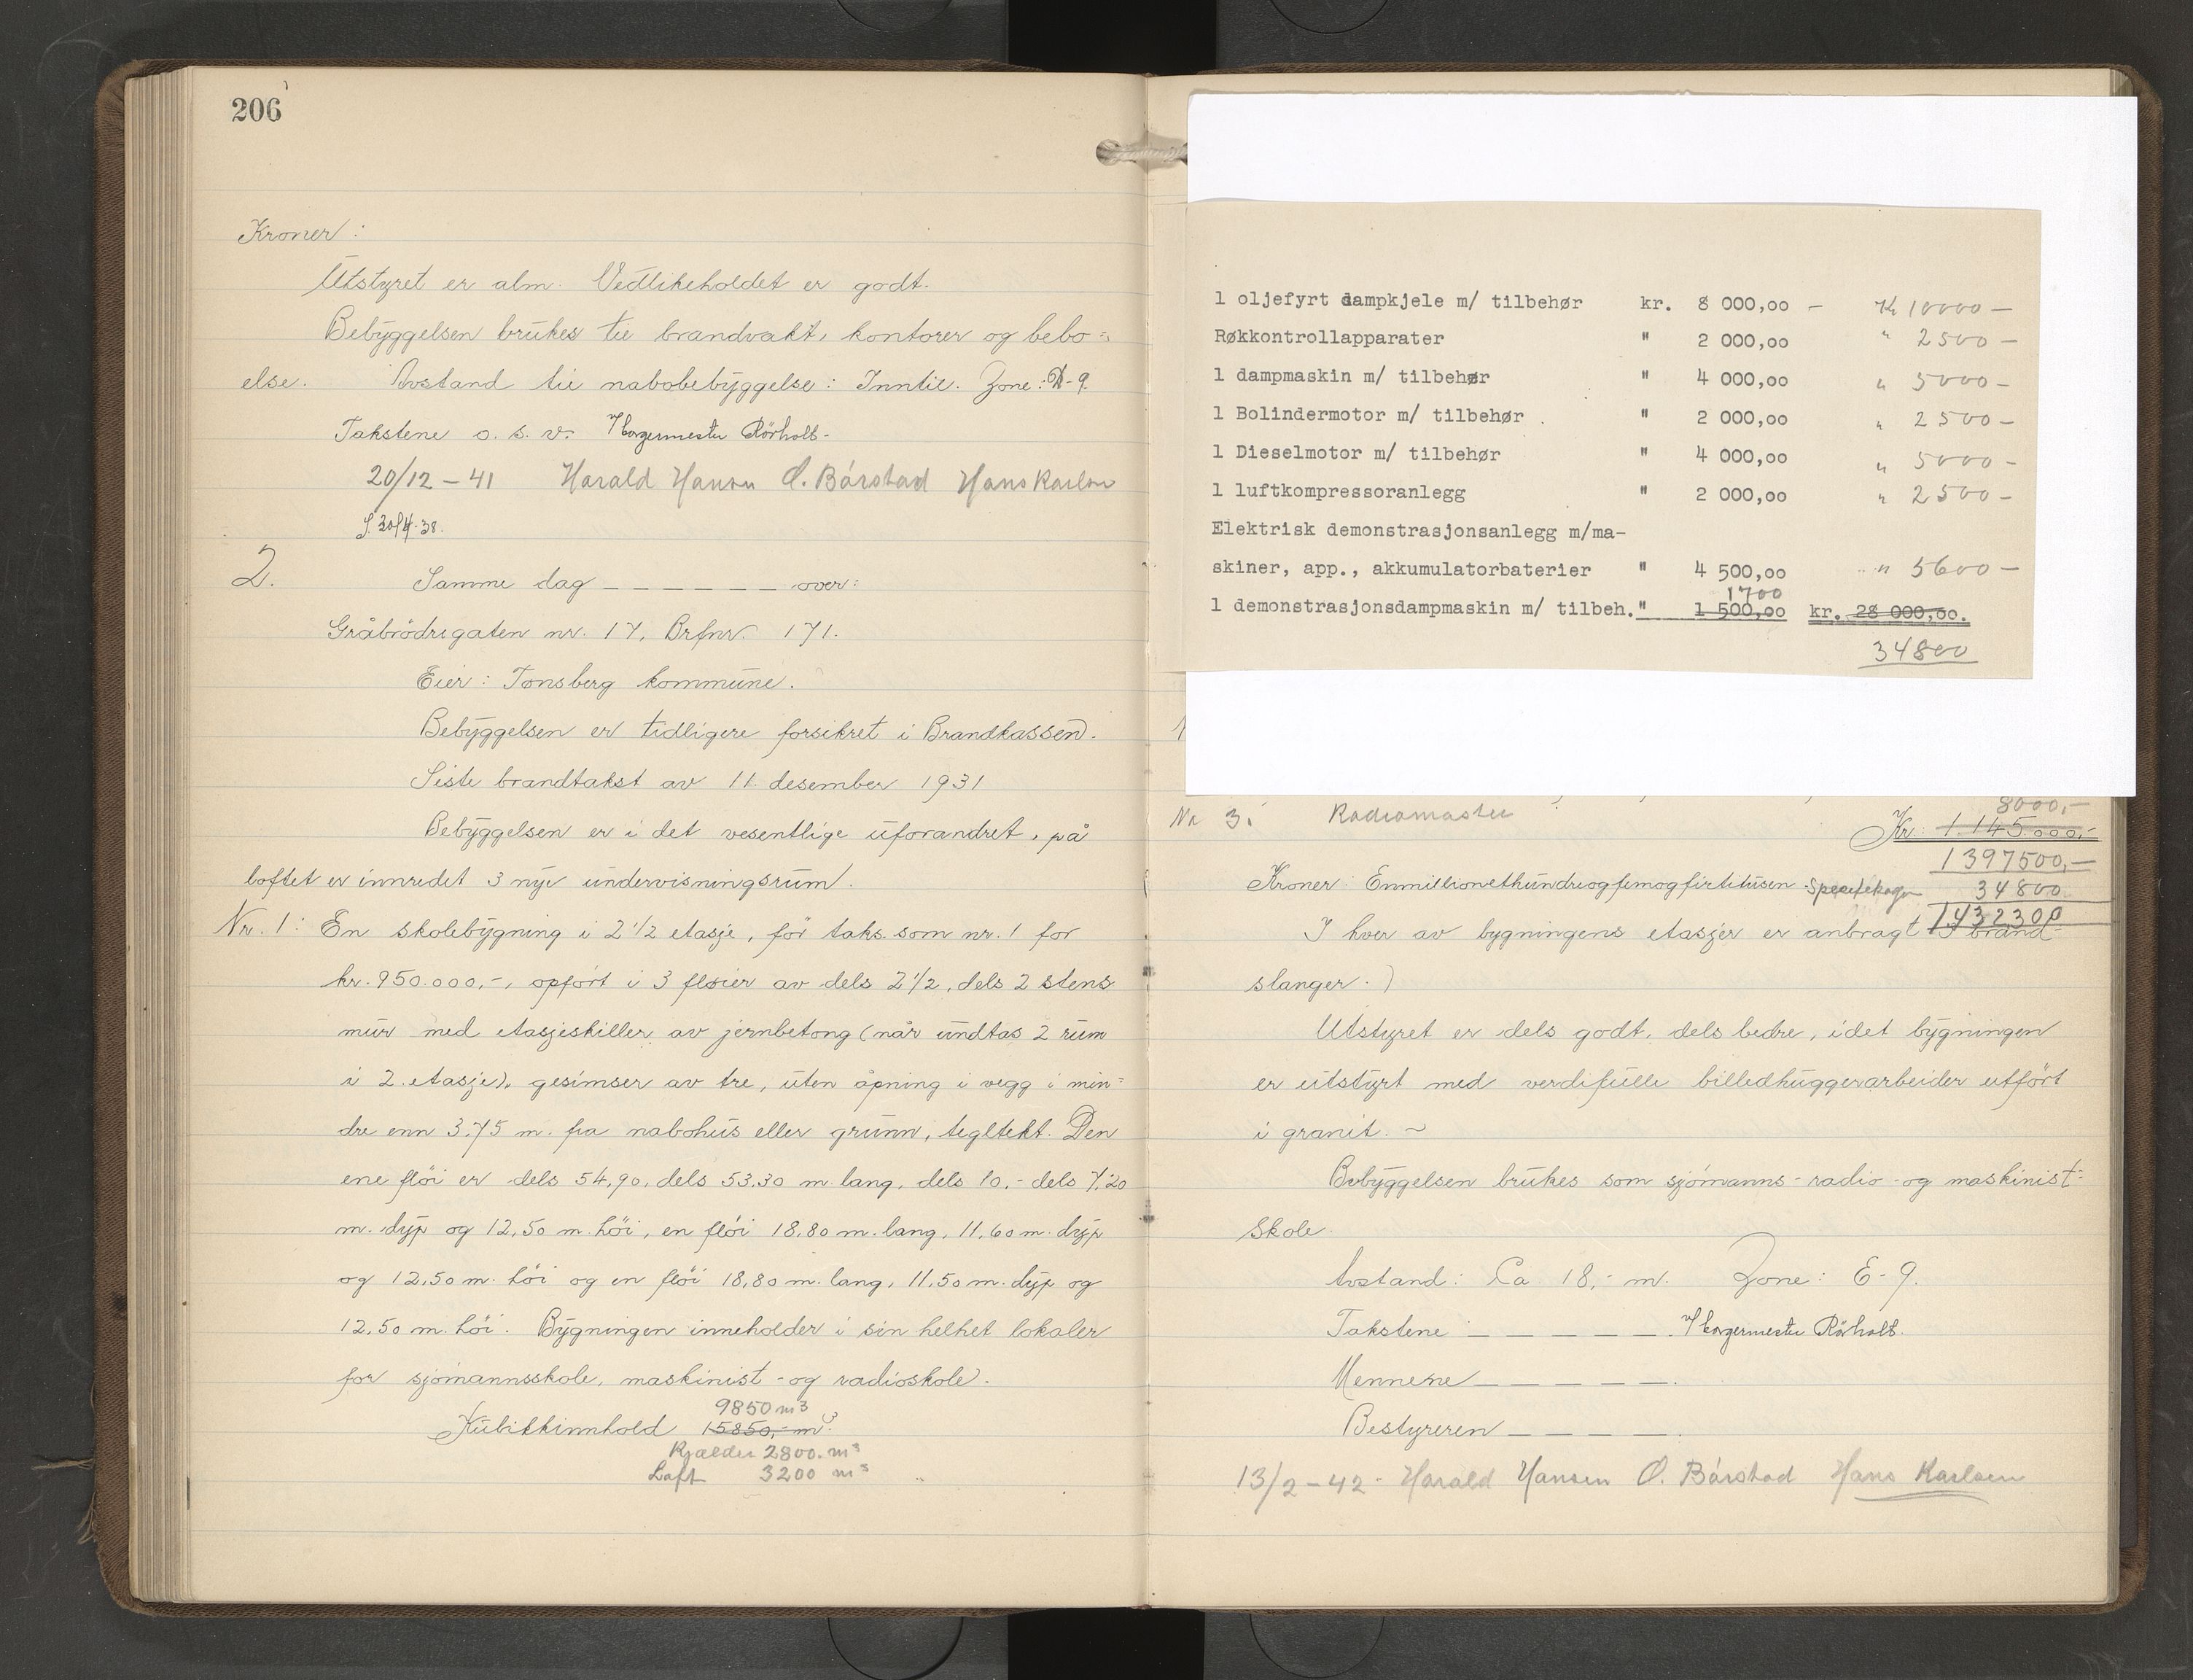 206
Kroner :
Utstyret er alm. Vedlikeholdet er godt.
Bebyggelsen brukes til brandvakt, kontorer og bebo=
else. Avstand til nabobebyggelse : Inntil. Zone : D-9.
Takstene o. s. v. Rørholt-
20/12 - 41 Harald Hansen O. Bárstad Hans Karlsen
S. 30/4-38.
2. Samme dag — — — — — — over:
Gråbrödregaten nr. 17, Brfnr. 171.
Eier : Tønsberg kommune.
Bebyggelsen er tidligere forsikret i Brandkassen.
Siste brandtakst av 11. desember 1931
Bebyggelsen er i det vesentlige uforandret, på
loftet er innredet 3 nye undervisningsrum.
Nr. 1: En skolebygning i 2 1/2 etasje, før taks. som nr. 1 for
kr. 950.000,-, opført i 3 fløier av dels 2 1/2, dels 2 stens
mur med etasjeskiller av jernbetong (når undtas 2 rum
i 2. etasje), gesimser av tre, uten åpning i vegg i min=
dre enn 3.75 m. fra nabohus eller grunn, tegltekt. Den
ene fløi er dels 54,90, dels 53.30 m. lang, dels 10,- dels 7,20
m. dyp og 12,50 m. høi, en fløi 18,80 m. lang, 11,60 m. dyp
og 12,50 m. høi og en fløi 18,80 m. lang, 11,50 m. dyp og
12,50 m. høi. Bygningen inneholder i sin helhet lokaler
for sjømannsskole, maskinist - og radioskole.
9850 m3
Kubikkinnhold 15850,- m3
Kjælder 2800. m3
Loft 3200 m3
1 oljefyrt dampkjele m/ tilbehør kr. 8 000,oo - Kr 10000 -
Røkkontrollapparater " 2 000,oo " 2500 -
1 dampmaskin m/ tilbehør " 4 000,oo " 5000 -
1 Bolindermotor m/ tilbehør " 2 000,oo " 2500 -
1 Dieselmotor m/ tilbehør " 4 000,oo " 5000 -
1 luftkompressoranlegg " 2 000,oo " 2500 -
Elektrisk demonstrasjonsanlegg m/ma-
skiner, app., akkumulatorbaterier " 4 500,oo " 5600 -
1700
1 demonstrasjonsdampmaskin m/ tilbeh." 1 500,oo kr. 28 000,oo.
34800
Nr 3. Radiomaster 8000,-
Kr. 1.145.000,-
1397500,-
Kroner : Enmillionethundreogfemogfirtitusen. 34800
1432300
I hver av bygningens etasjer er anbragt brand-
slanger.)
Utstyret er dels godt, dels bedre, idet bygningen
er utstyrt med verdifulle billedhuggerarbeider utført
i granit. ~
Bebyggelsen brukes som sjømanns - radio - og maskinist=
skole.
Avstand : Ca 18,- m. Zone : E-9.
Takstene — — — — —. Rørholt.
Mennene — — — — —.
Bestyreren — — — —.
13/2 - 42 - Harald Hansen O. Bárstad Hans Karlsen